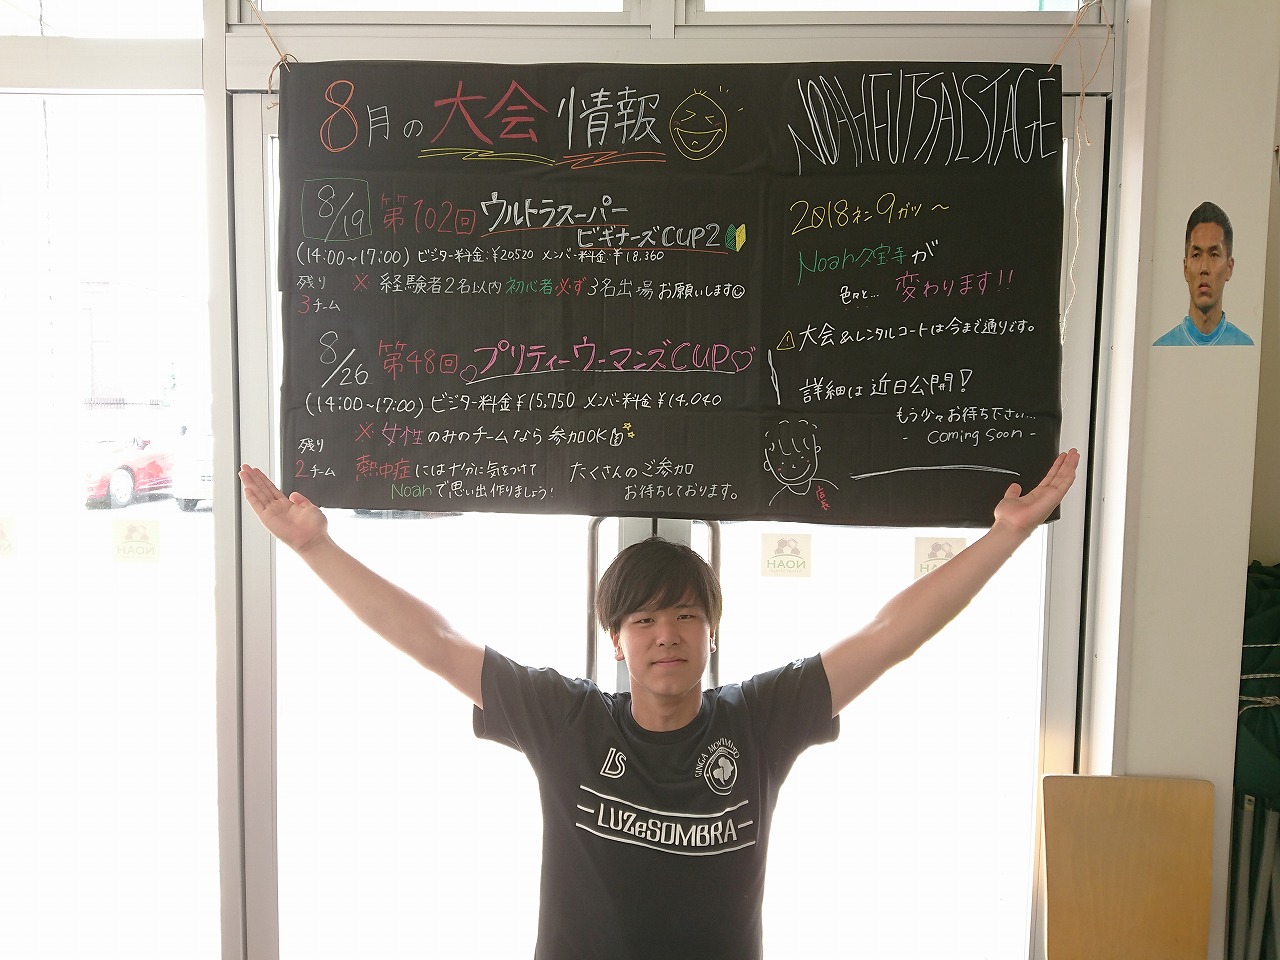 8月の大会情報
8/19 第102回 ウルトラスーパー
ビギナーズCUP2
(14:00~17:00) ビジター料金:¥20,520 メンバー料金:¥18,360
残り
3チーム
※ 経験者2名以内 初心者必ず3名出場お願いします
8/26 第48回 プリティーウーマンズCUP♡
(14:00~17:00) ビジター料金¥15,750 メンバー料金¥14,040
残り
2チーム
※女性のみのチームなら参加OK
熱中症には十分に気をつけて
Noahで思い出作りましょう!
たくさんのご参加
お待ちしております。
NOAHFUTSALSTAGE
2018ネン9ガツ~
Noah久宝寺が
色々と… 変わります!!
大会&レンタルコートは今まで通りです。
詳細は近日公開!
もう少々お待ち下さい…
- Coming Soon -
NOAH
NOAH
NOAH
LS
GINGA MOVIMENTO
LUZeSOMBRA